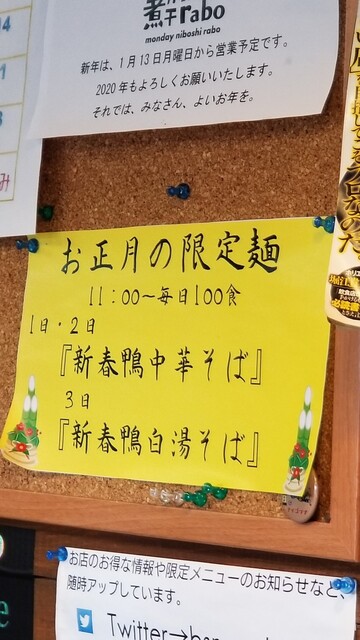 煮干rabo
monday niboshi rabo
新年は、1月13日月曜日から営業予定です。
2020年もよろしくお願いいたします。
それでは、みなさん、よいお年を。
お正月の限定麺
11:00〜毎日100食
1日・2日
『新春鴨中華そば』
3日
『新春鴨白湯そば』
お店のお得な情報や限定メニューのお知らせなど、
随時アップしています。